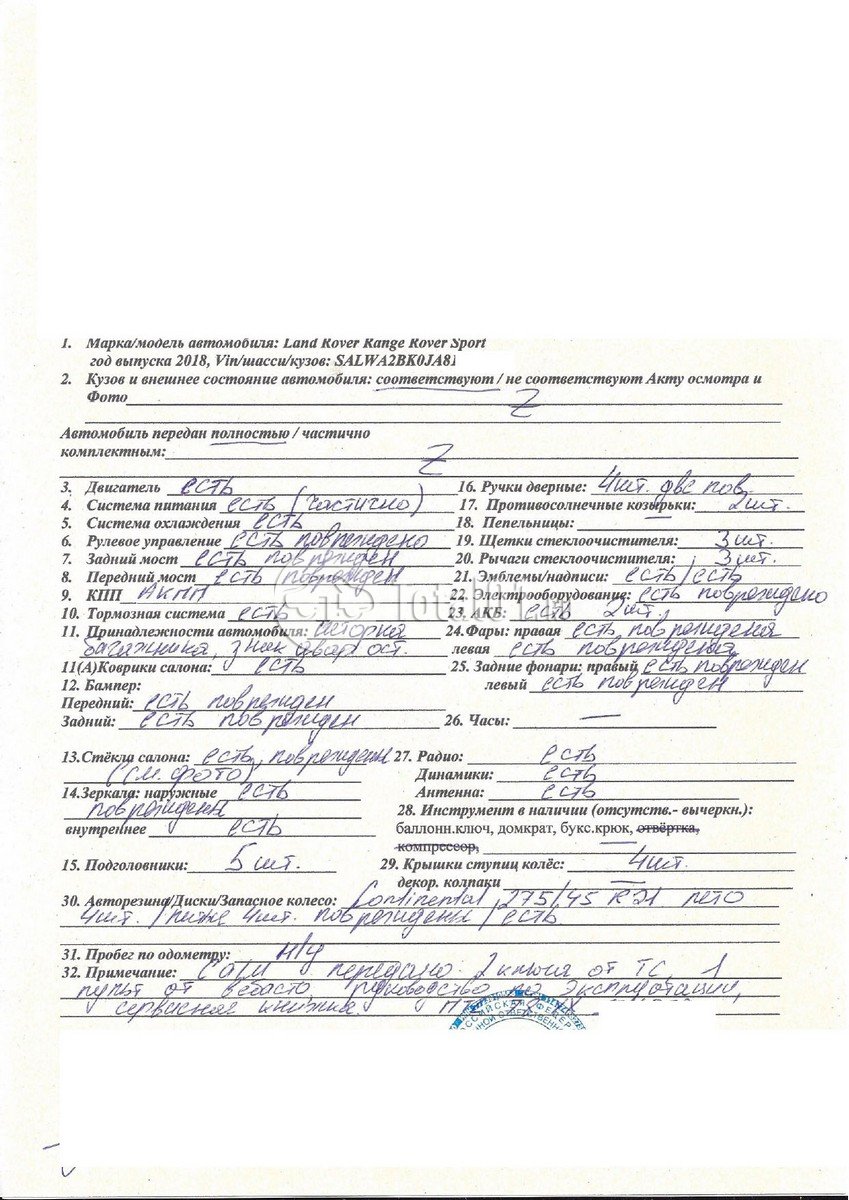 1. Марка/модель автомобиля: Land Rover Range Rover Sport
год выпуска 2018, Vin/шасси/кузов: SALWA2BK0JA81
2. Кузов и внешнее состояние автомобиля: соответствуют / не соответствуют Акту осмотра и
Фото Z
Автомобиль передан полностью / частично
комплектным: Z
3. Двигатель есть
4. Система питания есть (частично)
5. Система охлаждения есть
6. Рулевое управление есть повреждено
7. Задний мост есть поврежден
8. Передний мост есть поврежден
9. КПП АКПП
10. Тормозная система есть
11. Принадлежности автомобиля: шторка
багажника, знак авар. ост.
11(А)Коврики салона: есть
12. Бампер:
Передний: есть поврежден
Задний: есть поврежден
13.Стёкла салона: есть, повреждены
(см. фото)
14.Зеркала: наружные есть
повреждены
внутреннее есть
15. Подголовники: 5 шт.
16. Ручки дверные: 4шт. две пов.
17. Противосолнечные козырьки: 2 шт.
18. Пепельницы: —
19. Щетки стеклоочистителя: 3 шт.
20. Рычаги стеклоочистителя: 3 шт.
21. Эмблемы/надписи: есть/есть
22. Электрооборудование: есть повреждено
23. АКБ: есть 2 шт.
24.Фары: правая есть повреждена
левая есть повреждена
25. Задние фонари: правый есть поврежден
левый есть поврежден
26. Часы: —
27. Радио: есть
Динамики: есть
Антенна: есть
28. Инструмент в наличии (отсутств.- вычеркн.):
баллонн.ключ, домкрат, букс.крюк, отвёртка,
компрессор, —
29. Крышки ступиц колёс: 4шт.
декор. колпаки —
30. Авторезина/Диски/Запасное колесо: Continental 275/45 R21 лето
4шт. / 4шт. повреждены / есть
31. Пробег по одометру: н/у
32. Примечание: передано 2 ключа от ТС, 1
пульт от вебасто руководство по эксплуатации,
сервисная книжка.